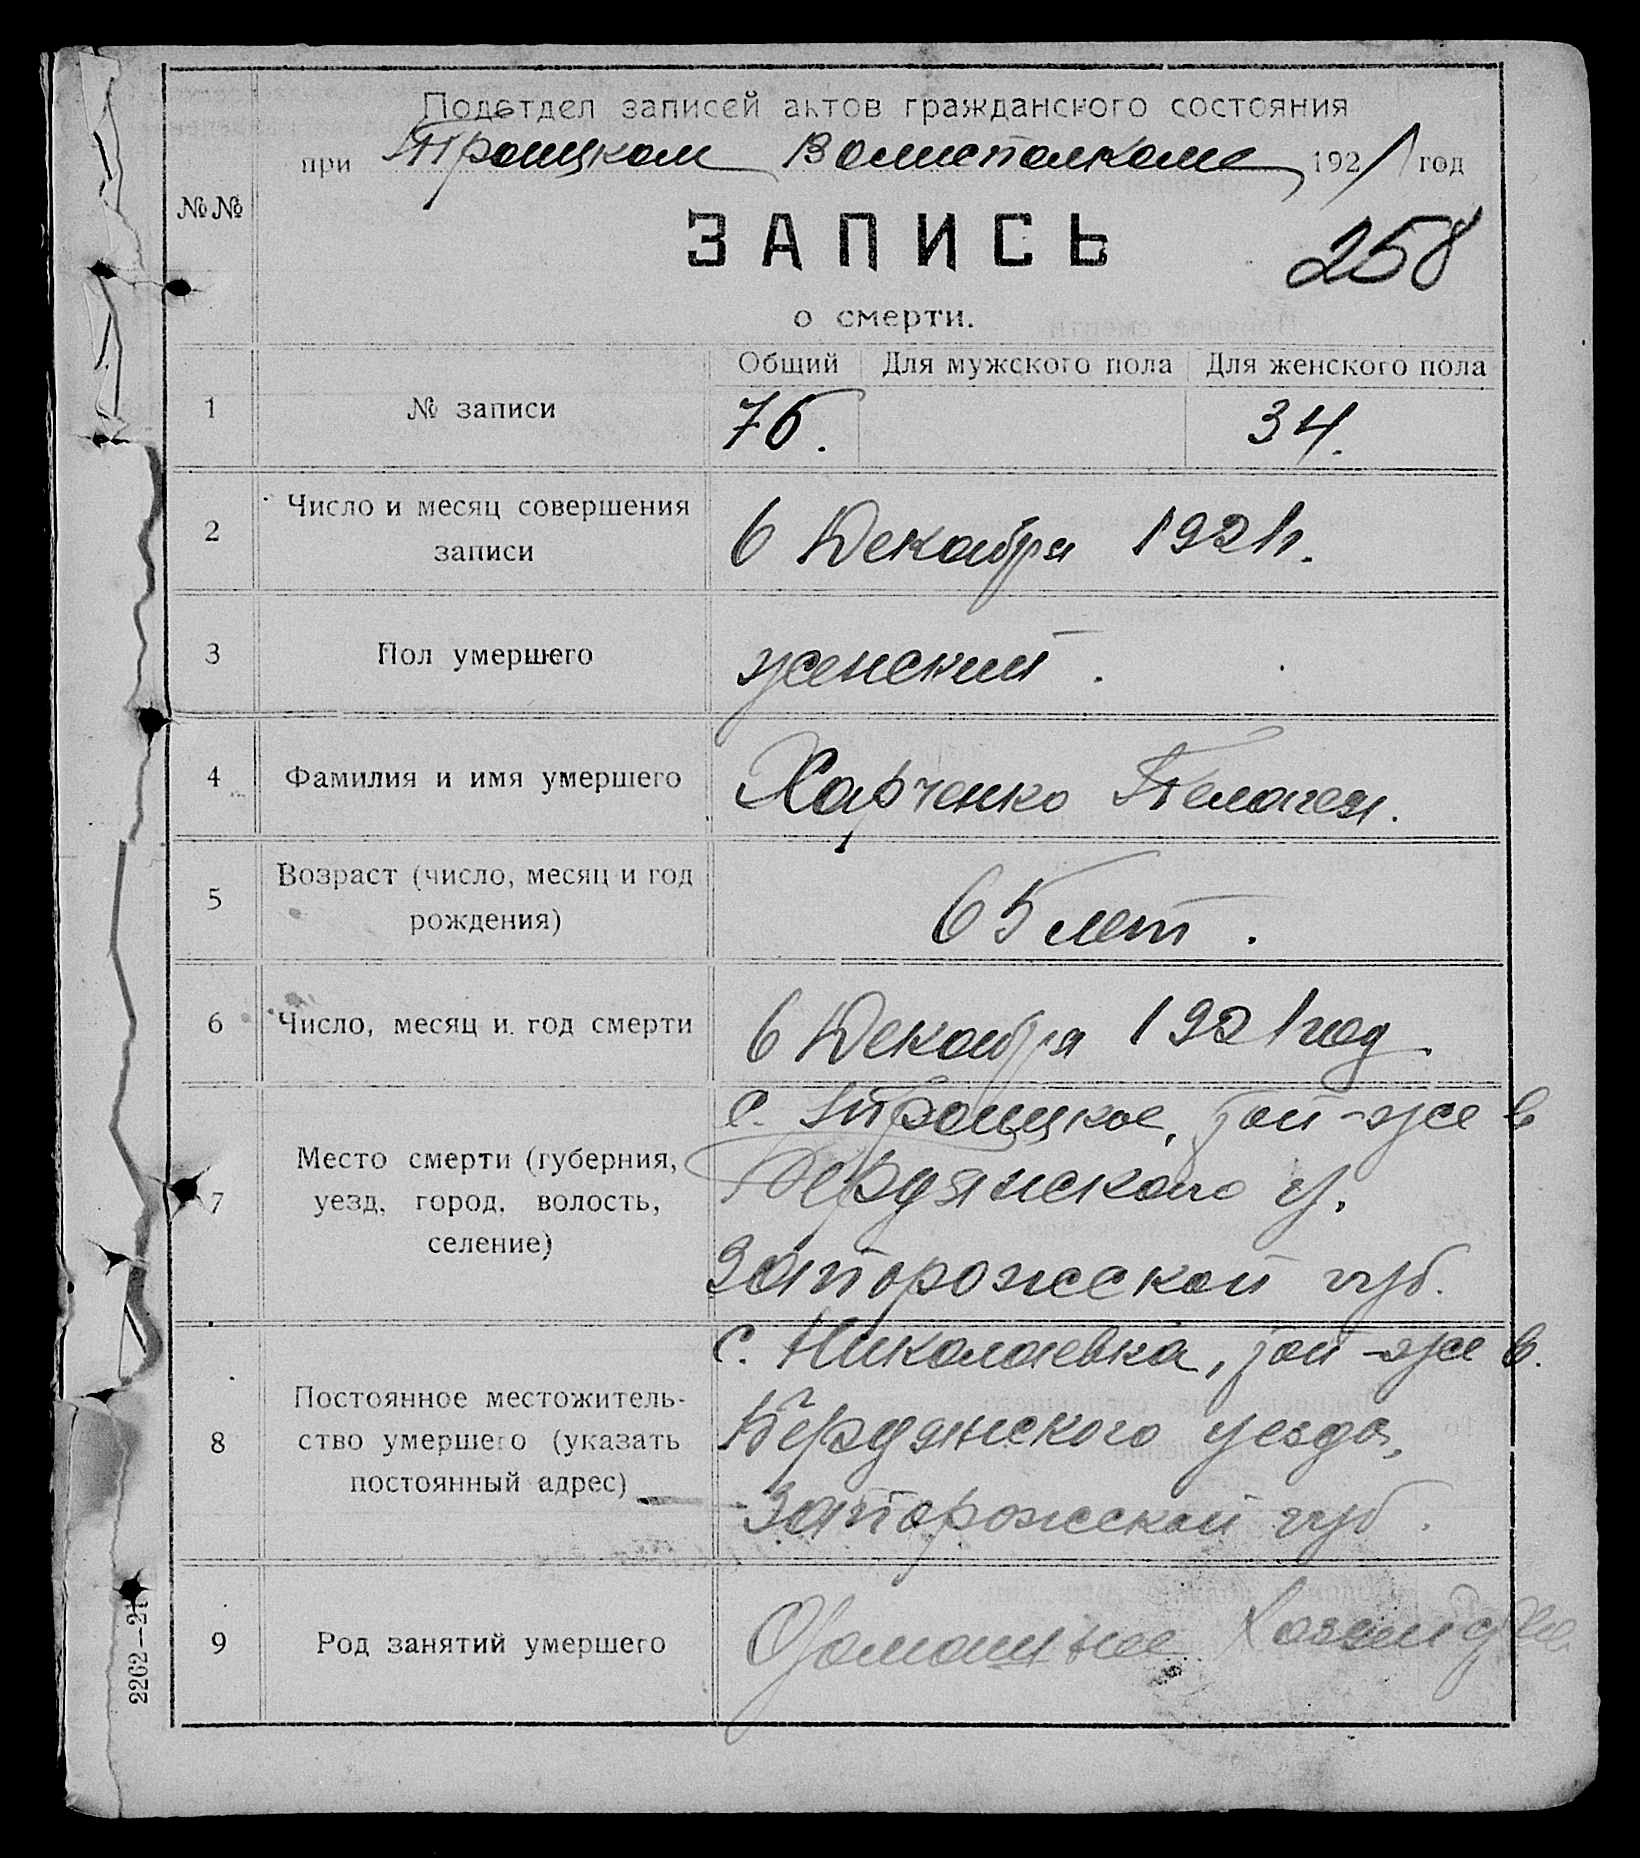 Подотдел записей актов гражданского состояния
при Троицком Волисполкоме 1921 год
№№
ЗАПИСЬ
258
о смерти.
Общий Для мужского пола Для женского пола
1 № записи 76. 34.
2 Число и месяц совершения
записи
6 Декабря 1921г.
3 Пол умершего женский.
4 Фамилия и имя умершего Харченко Пелагея.
5 Возраст (число, месяц и год
рождения)
65 лет.
6 Число, месяц и год смерти 6 Декабря 1921 год
7 Место смерти (губерния,
уезд, город, волость,
селение)
с. Троицкое, той-же в
Бердянского у.
Запорожской губ.
8 Постоянное местожитель-
ство умершего (указать
постоянный адрес)
с. Николаевка, той-же в.
Бердянского уезда,
Запорожской губ.
9 Род занятий умершего Домашнее
2262—21